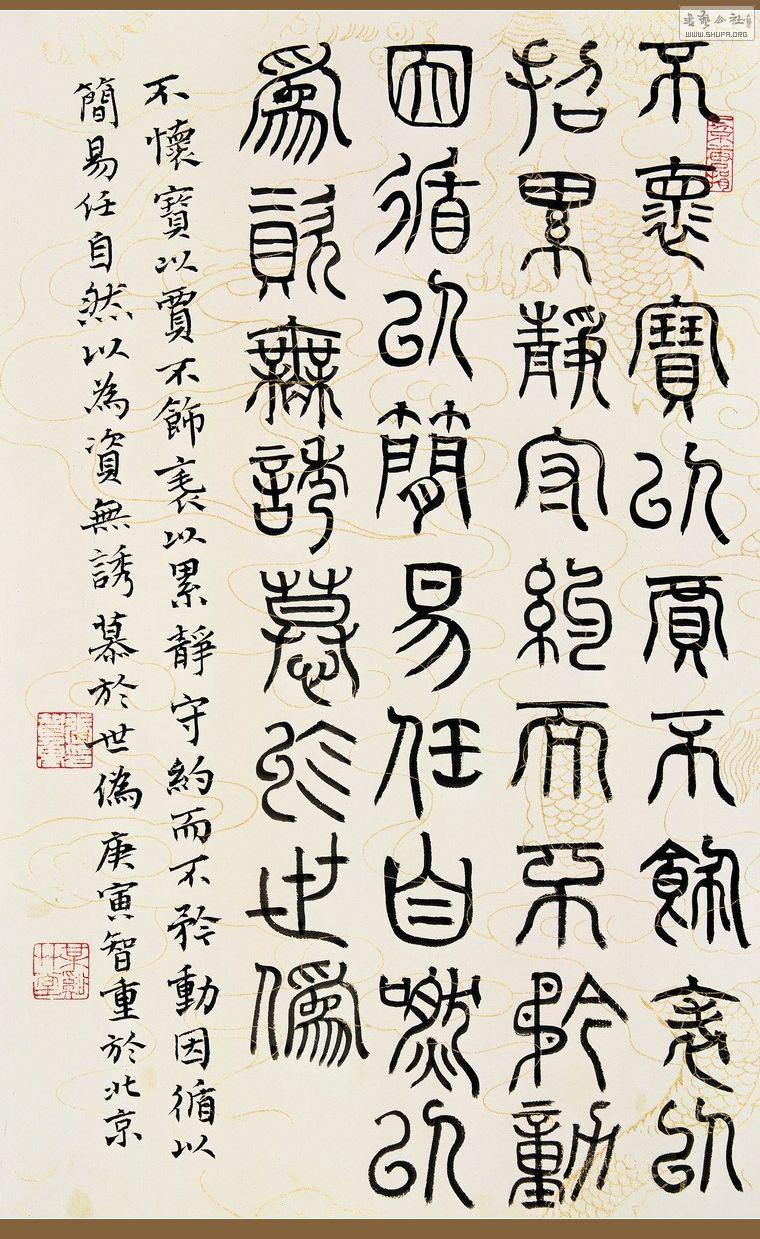 不褱寶以賈不飾表以
招累靜守約而不矜動
因循以簡易任自嘫以
爲資無誘慕於世僞
不懷寶以賈不飾表以累靜守約而不矜動因循以
簡易任自然以為資無誘慕於世偽 庚寅智重於北京
书艺公社
WWW.SHUFA.ORG